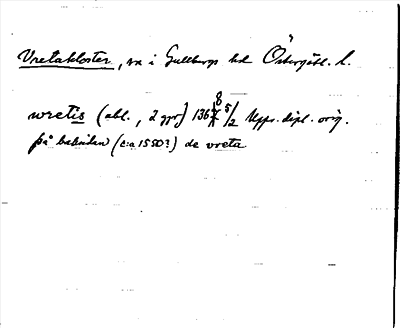 Vretakloster, sn i Gullbergs hd Östergötl. l.
wretis (abl., 2 ggr) 1368 5/2 Uppr. dipl. orig.
på baksidan (c:a 1550?) de vreta